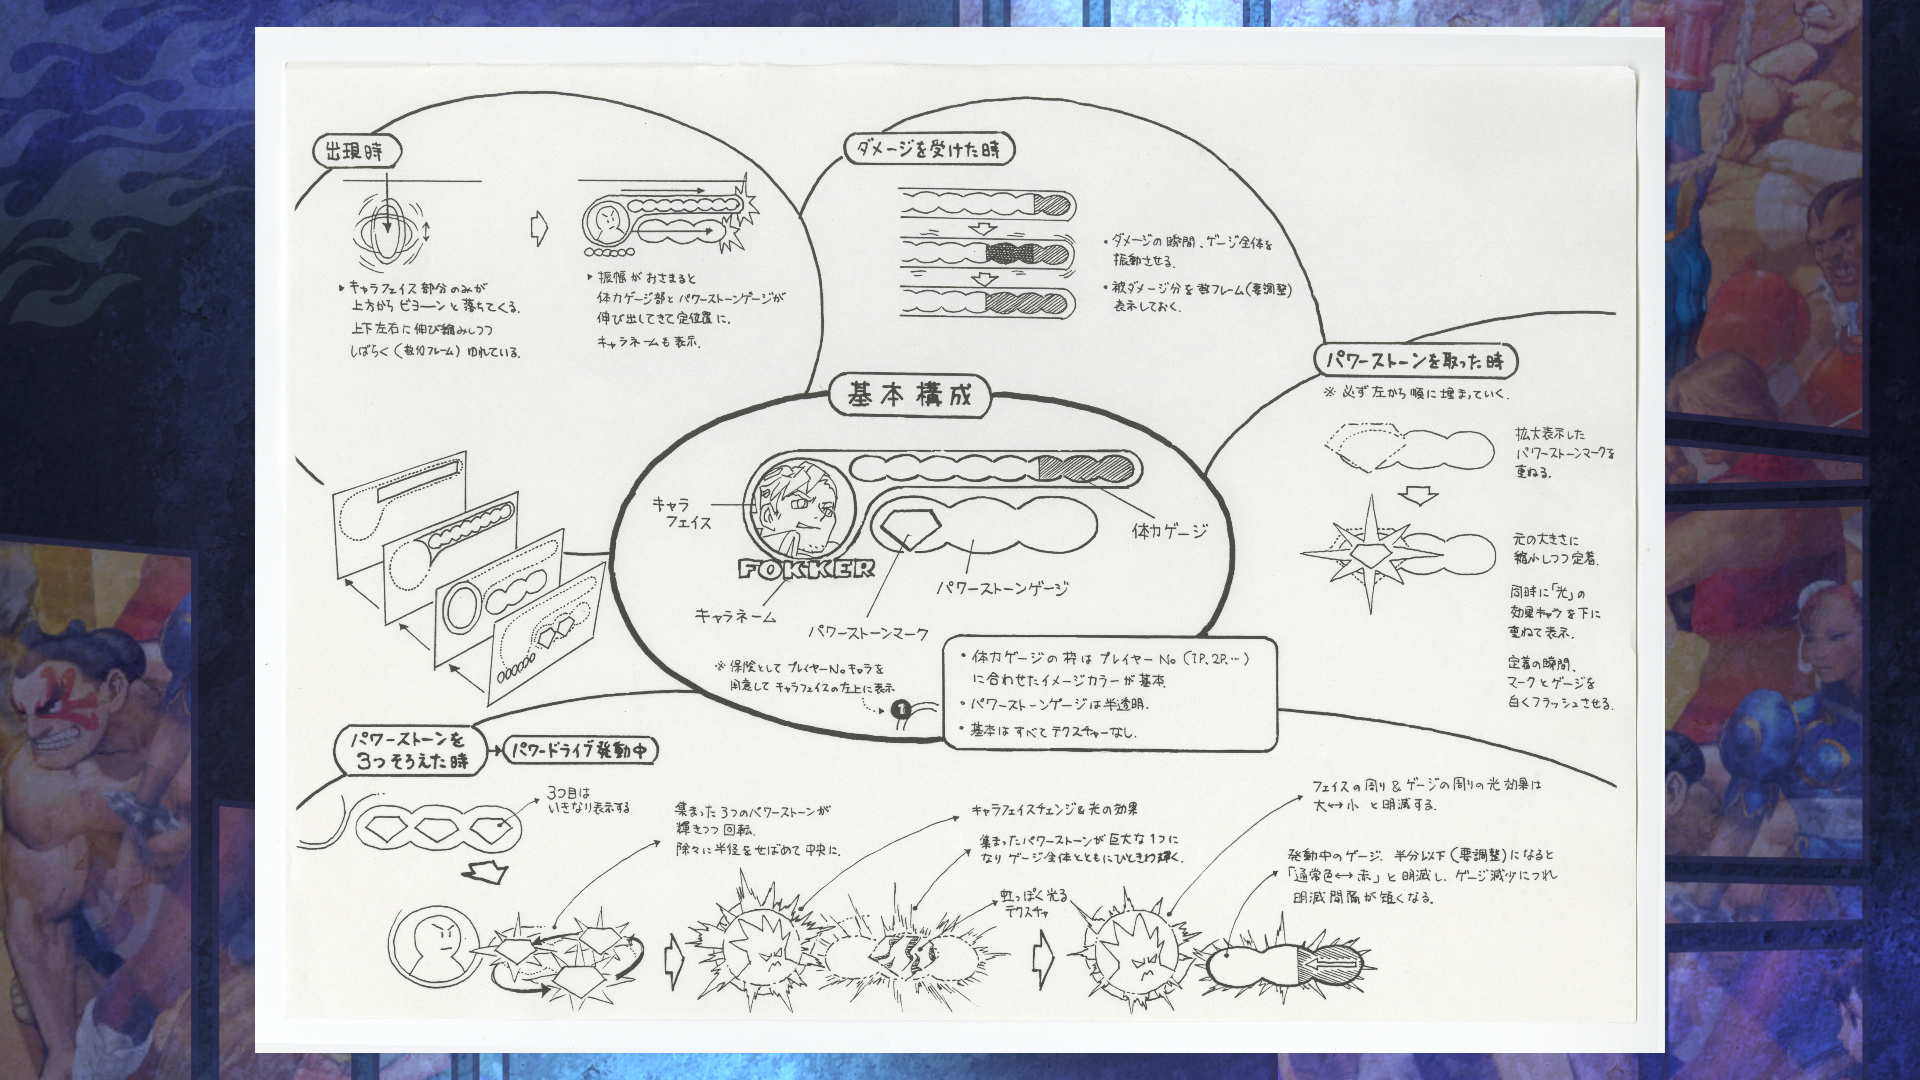 出現時
▸キャラフェイス部分のみが
上方からビヨーンと落ちてくる。
上下左右に伸び縮みしつつ
しばらく(数10フレーム)ゆれている。
▸振幅がおさまると
体力ゲージ部とパワーストーンゲージが
伸び出してきて定位置に。
キャラネームも表示。
ダメージを受けた時
・ダメージの瞬間、ゲージ全体を
振動させる。
・被ダメージ分を数フレーム(要調整)
表示しておく。
パワーストーンを取った時
※必ず左から順に埋まっていく。
拡大表示した
パワーストーンマークを
重ねる。
元の大きさに
縮小しつつ定着。
同時に「光」の
効果キャラを下に
重ねて表示。
定着の瞬間、
マークとゲージを
白くフラッシュさせる。
基本構成
キャラ
フェイス
FOKKER
キャラネーム
パワーストーンマーク
パワーストーンゲージ
体力ゲージ
※保険としてプレイヤーNoキャラを
用意してキャラフェイスの左上に表示
1
・体力ゲージの枠はプレイヤーNo(1P、2P、…)
に合わせたイメージカラーが基本。
・パワーストーンゲージは半透明。
・基本はすべてテクスチャーなし。
パワーストーンを
3つそろえた時
パワードライブ発動中
3つ目は
いきなり表示する
集まった3つのパワーストーンが
輝きつつ回転。
除々に半径をせばめて中央に。
キャラフェイスチェンジ&光の効果
集まったパワーストーンが巨大な1つに
なりゲージ全体とともにひときわ輝く。
虹っぽく光る
テクスチャ
フェイスの周り&ゲージの周りの光効果は
大↔小 と明滅する。
発動中のゲージ、半分以下(要調整)になると
「通常色↔赤」と明滅し、ゲージ減少につれ
明滅間隔が短くなる。